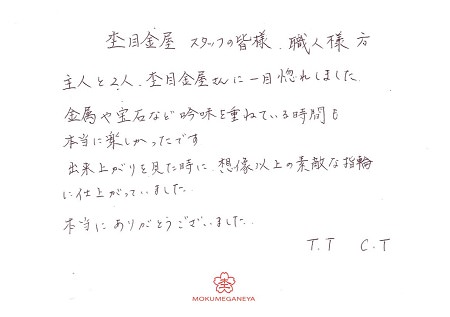 杢目金屋 スタッフの皆様、職人様方
主人と2人、杢目金屋さんに一目惚れしました
金属や宝石など吟味を重ねている時間も
本当に楽しかったです
出来上がりを見た時に、想像以上の素敵な指輪
に仕上がっていました
本当にありがとうございました
T.T C.T
杢
MOKUMEGANEYA